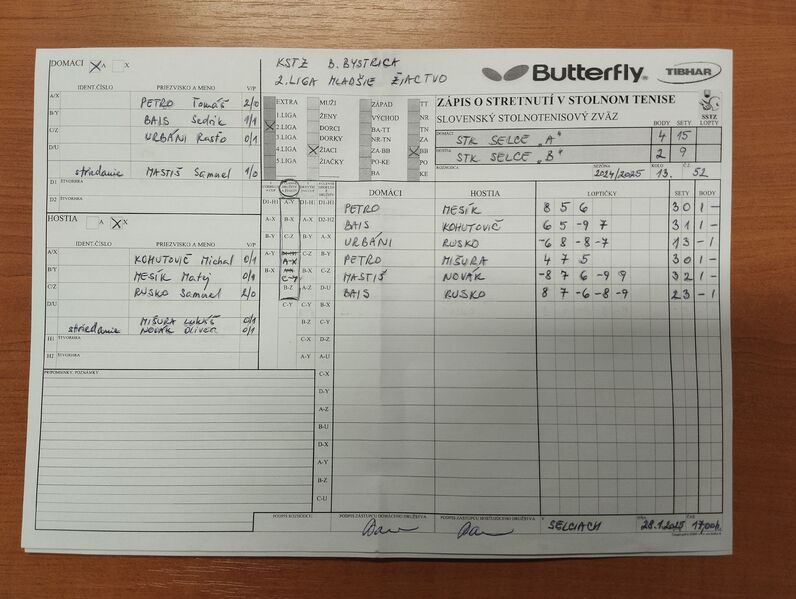 DOMÁCI X A X
KSTZ B. BYSTRICA
2. LIGA MLADŠIE ŽIACTVO
Butterfly
TIBHAR
IDENT.ČÍSLO PRIEZVISKO A MENO V/P
A/X PETRO Tomáš 2/0
B/Y BAIS Sedrik 1/1
C/Z URBÁNI Rasťo 0/1
D/U
striedanie MASTIŠ Samuel 1/0
D1 ŠTVORHRA
D2 ŠTVORHRA
EXTRA MUŽI ZÁPAD TT
1.LIGA ŽENY VÝCHOD NR
X 2.LIGA DORCI BA-TT TN
3.LIGA DORKY NR-TN ZA
4.LIGA X ŽIACI ZA-BB X BB
5.LIGA ŽIAČKY PO-KE PO
BA KE
ZÁPIS O STRETNUTÍ V STOLNOM TENISE
SLOVENSKÝ STOLNOTENISOVÝ ZVÄZ
SSTZ
BODY SETY LOPTY
DOMÁCI STK SELCE "A" 4 15
HOSTIA STK SELCE "B" 2 9
ROZHODCA SEZÓNA 2024/2025 KOLO 13. Č. 52
HOSTIA A X X
IDENT.ČÍSLO PRIEZVISKO A MENO V/P
A/X KOHUTOVIČ Michal 0/1
B/Y MESÍK Matej 0/1
C/Z RUSKO Samuel 2/0
D/U
MIŠURA Lukáš 0/1
striedanie NOVÁK Oliver 0/1
H1 ŠTVORHRA
H2 ŠTVORHRA
PRIPOMIENKY, POZNÁMKY
DOMÁCI HOSTIA LOPTIČKY SETY BODY
PETRO MESÍK 8 5 6 3 0 1 -
BAIS KOHUTOVIČ 6 5 -9 7 3 1 1 -
URBÁNI RUSKO -6 8 -8 -7 1 3 - 1
PETRO MIŠURA 4 7 5 3 0 1 -
MASTIŠ NOVÁK -8 7 6 -9 9 3 2 1 -
BAIS RUSKO 8 7 -6 -8 -9 2 3 - 1
D1-H1 A-Y D1-H1 D1-H1
A-X B-X D2-H2
B-Y C-Z
A-Y A-X
B-X C-Y
B-Z D-U
C-Y C-Y B-X
B-Z C-Z
C-X D-Z
A-Y A-U
C-X
D-Y
A-Z
B-U
D-X
A-Y
B-Z
C-U
PODPIS ROZHODCU PODPIS ZÁSTUPCU DOMÁCEHO DRUŽSTVA PODPIS ZÁSTUPCU HOSŤUJÚCEHO DRUŽSTVA V SELCIACH DŇA 28.1.2025 ČAS 17,00h.